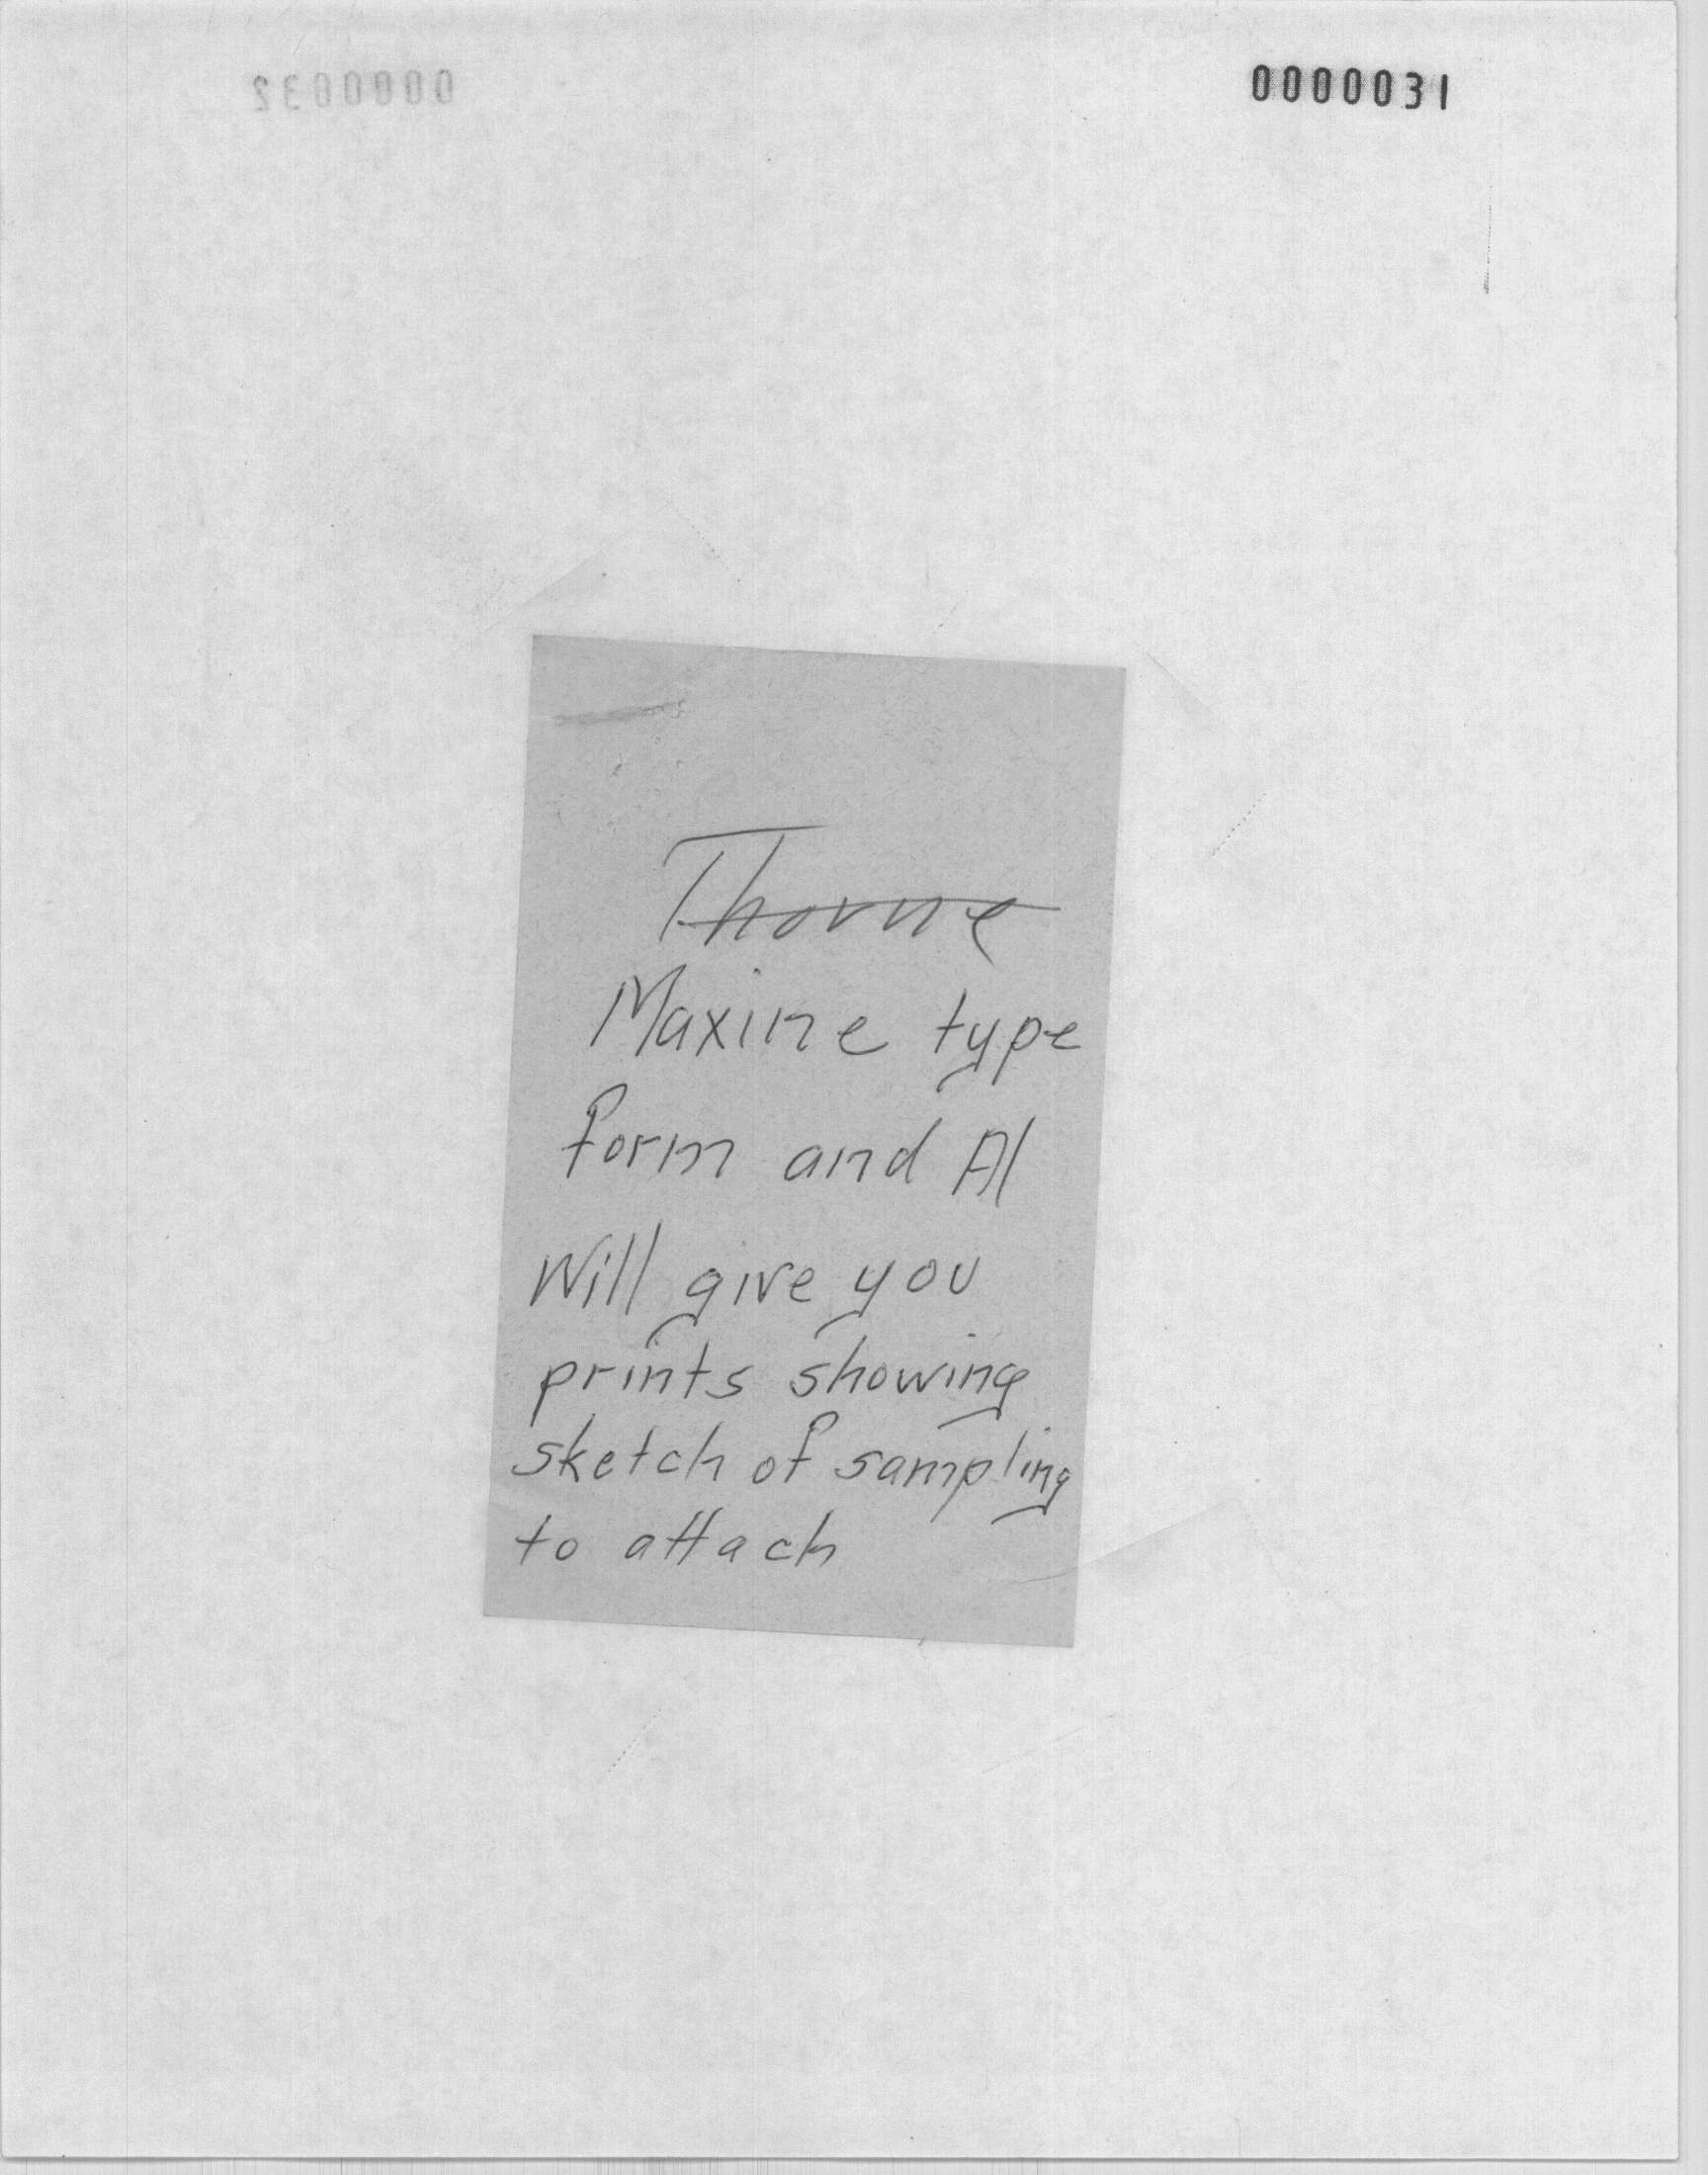 0000032
0000031
Thorne
Maxine type
form and Al
Will give you
prints showing
sketch of sampling
to attach